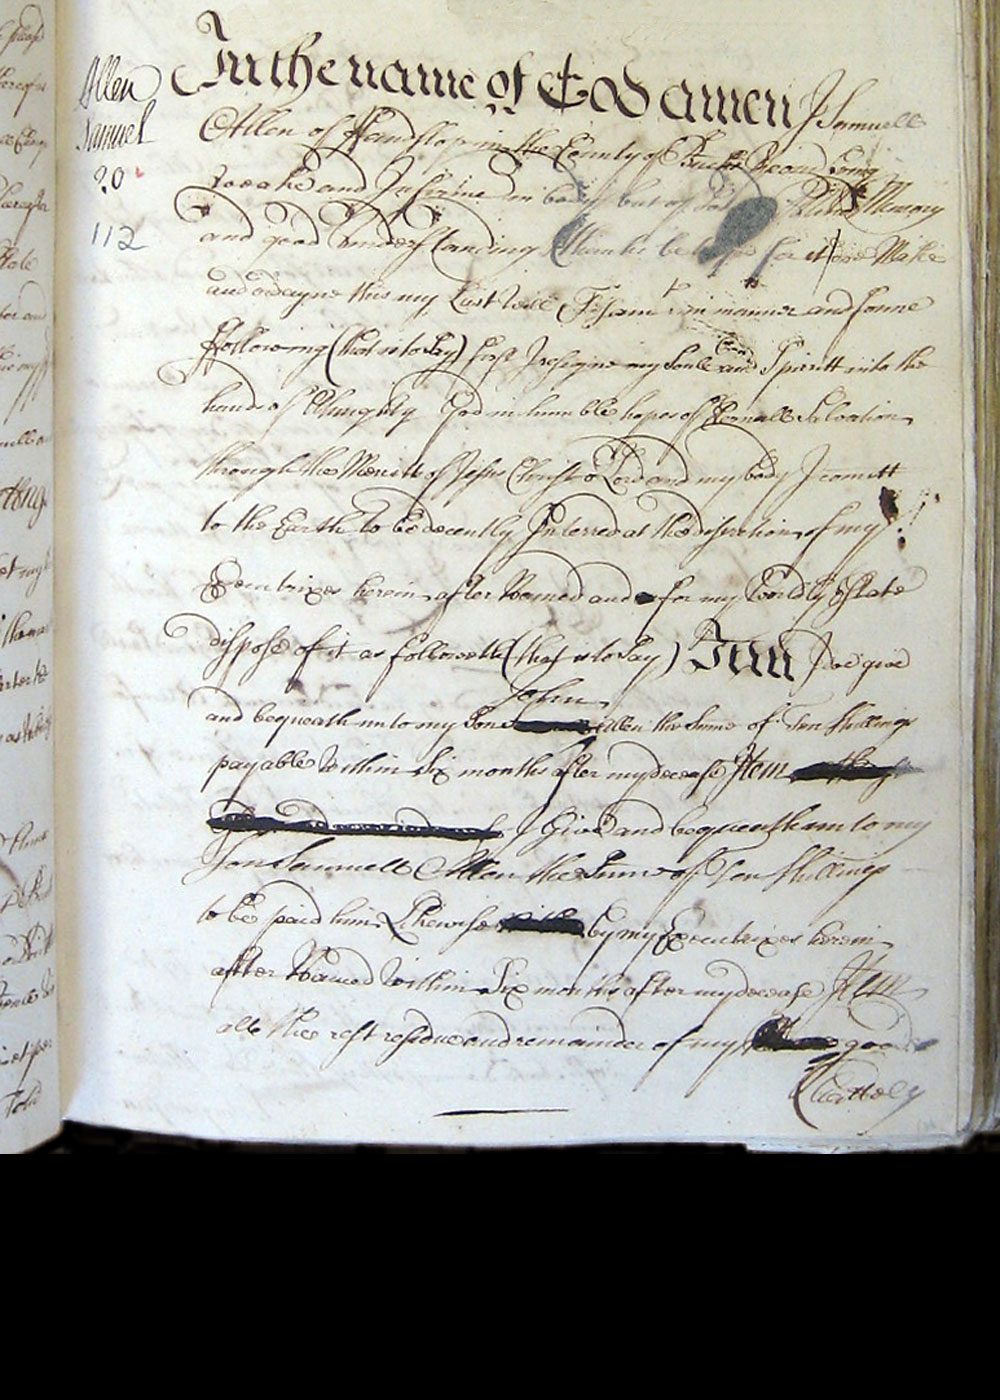 Allen
Samuel
20
112
In the name of God amen I Samuell
Allen of Hanslop in the County of Bucks being
weake and Infirme in body but of Memory
and good understanding thanks be for it doe Make
and ordayne this my Last Will & Testamt in manner and forme
following (that is to Say) first I resigne my Soule and Spiritt into the
hands of Almighty God in humble hopes of Eternall Salvation
through the Meritts of Jesus Christ o Lord and my body I comitt
to the Earth to be decently Interred at the discretion of my
Executrixes herein after Named and for my Worldly Estate
dispose of it as followeth (that is to Say) Item I doe give
John
and bequeath unto my Son Allen the Sume of Ten Shillings
payable Within Six months after my decease Item
I Give and bequeath unto my
Son Samuell Allen the Sume of Ten Shillings
to be paid him Likewise by my Executrixes herein
after Named Within Six months after my decease Item
all the rest residue and remainder of my goods
Chattels